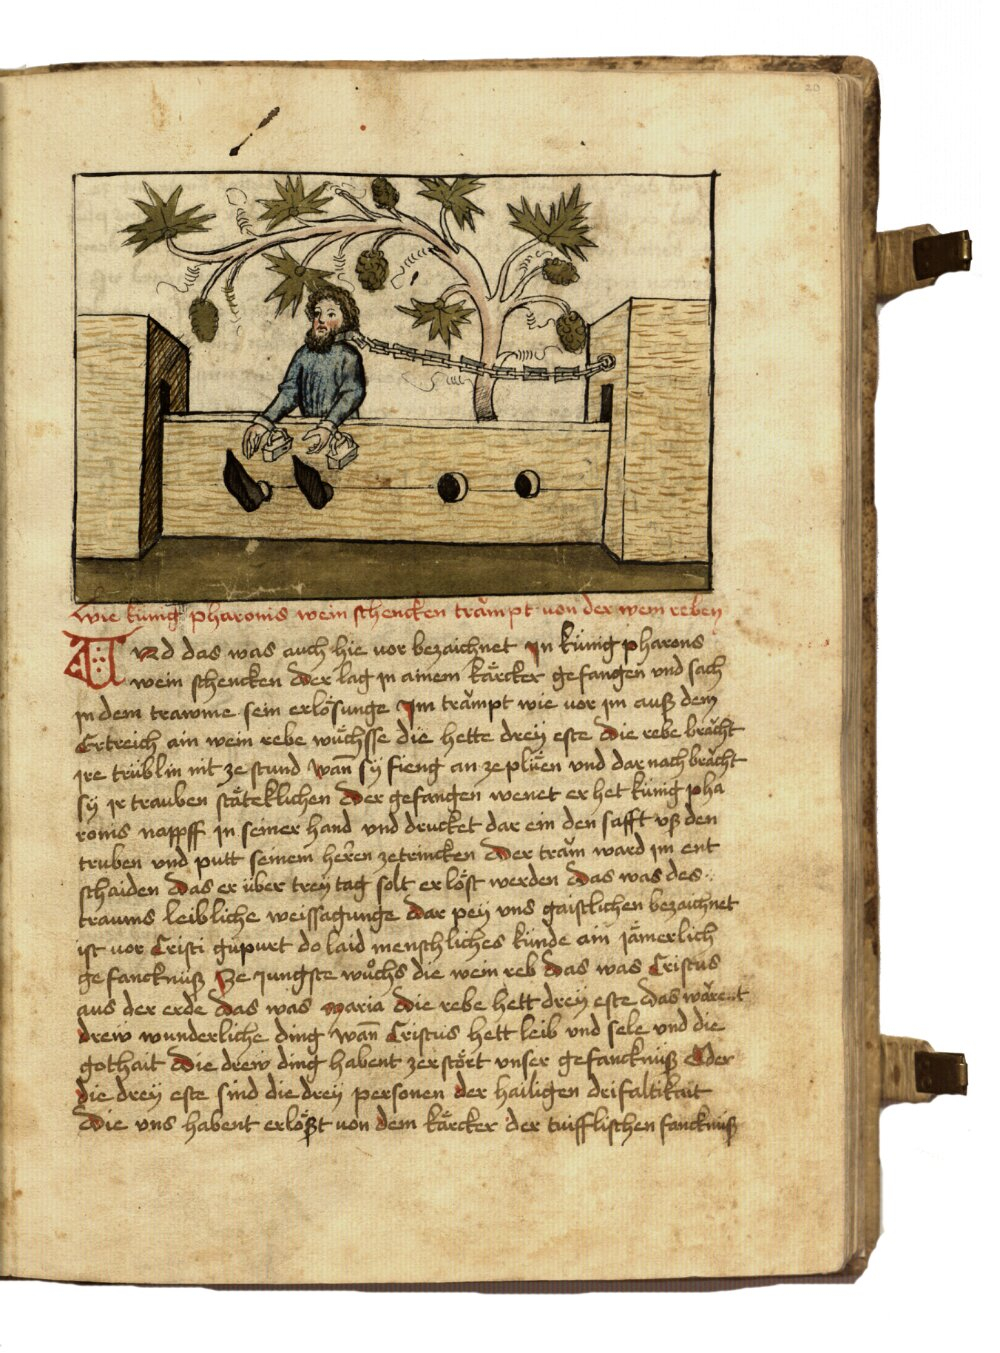 20
Wie künig pharonis wein schencken trämpt von der wein reben
Vnd das was auch hie vor bezaichnet Jn künig pharons
wein schencken Der lag jn ainem kärcker gefangen vnd sach
jn dem trawme sein erlösunge Jm trämpt wie vor jm auß dem
Ertreich ain wein rebe wüchsse die hette dreÿ este Die rebe brächt
jre trüblin nit ze stund Wan̄ sÿ fieng an ze plüen vnd dar nach brächt
sÿ jr trauben stäteklichen Der gefangen wenet er het künig pha
ronis nappff jn seiner hand vnd drucket dar ein den safft vß den
truben vnd putt seinem herren ze trincken Der träm ward jm ent
schaiden Das er über treÿ tag solt erlöst werden Das was des
traums leibliche weissagunge Dar peÿ vns gaistlichen bezaichnet
ist vor Cristi gupurt do laid menschliches künde ain jämerlich
gefancknüß Ze jungste wůchs die wein reb Das was Cristus
aus der erde Das was Maria Die rebe hett dreÿ este Das wärent
drew wunderliche ding Wan̄ Cristus hett leib vnd sele vnd die
gothait Die drew ding habent zerstört vnser gefancknüß Oder
die dreÿ este sind die dreÿ personen der hailigen drifaltikait
Die vns habent erlößt von dem kärcker der tuifflischen fancknüß